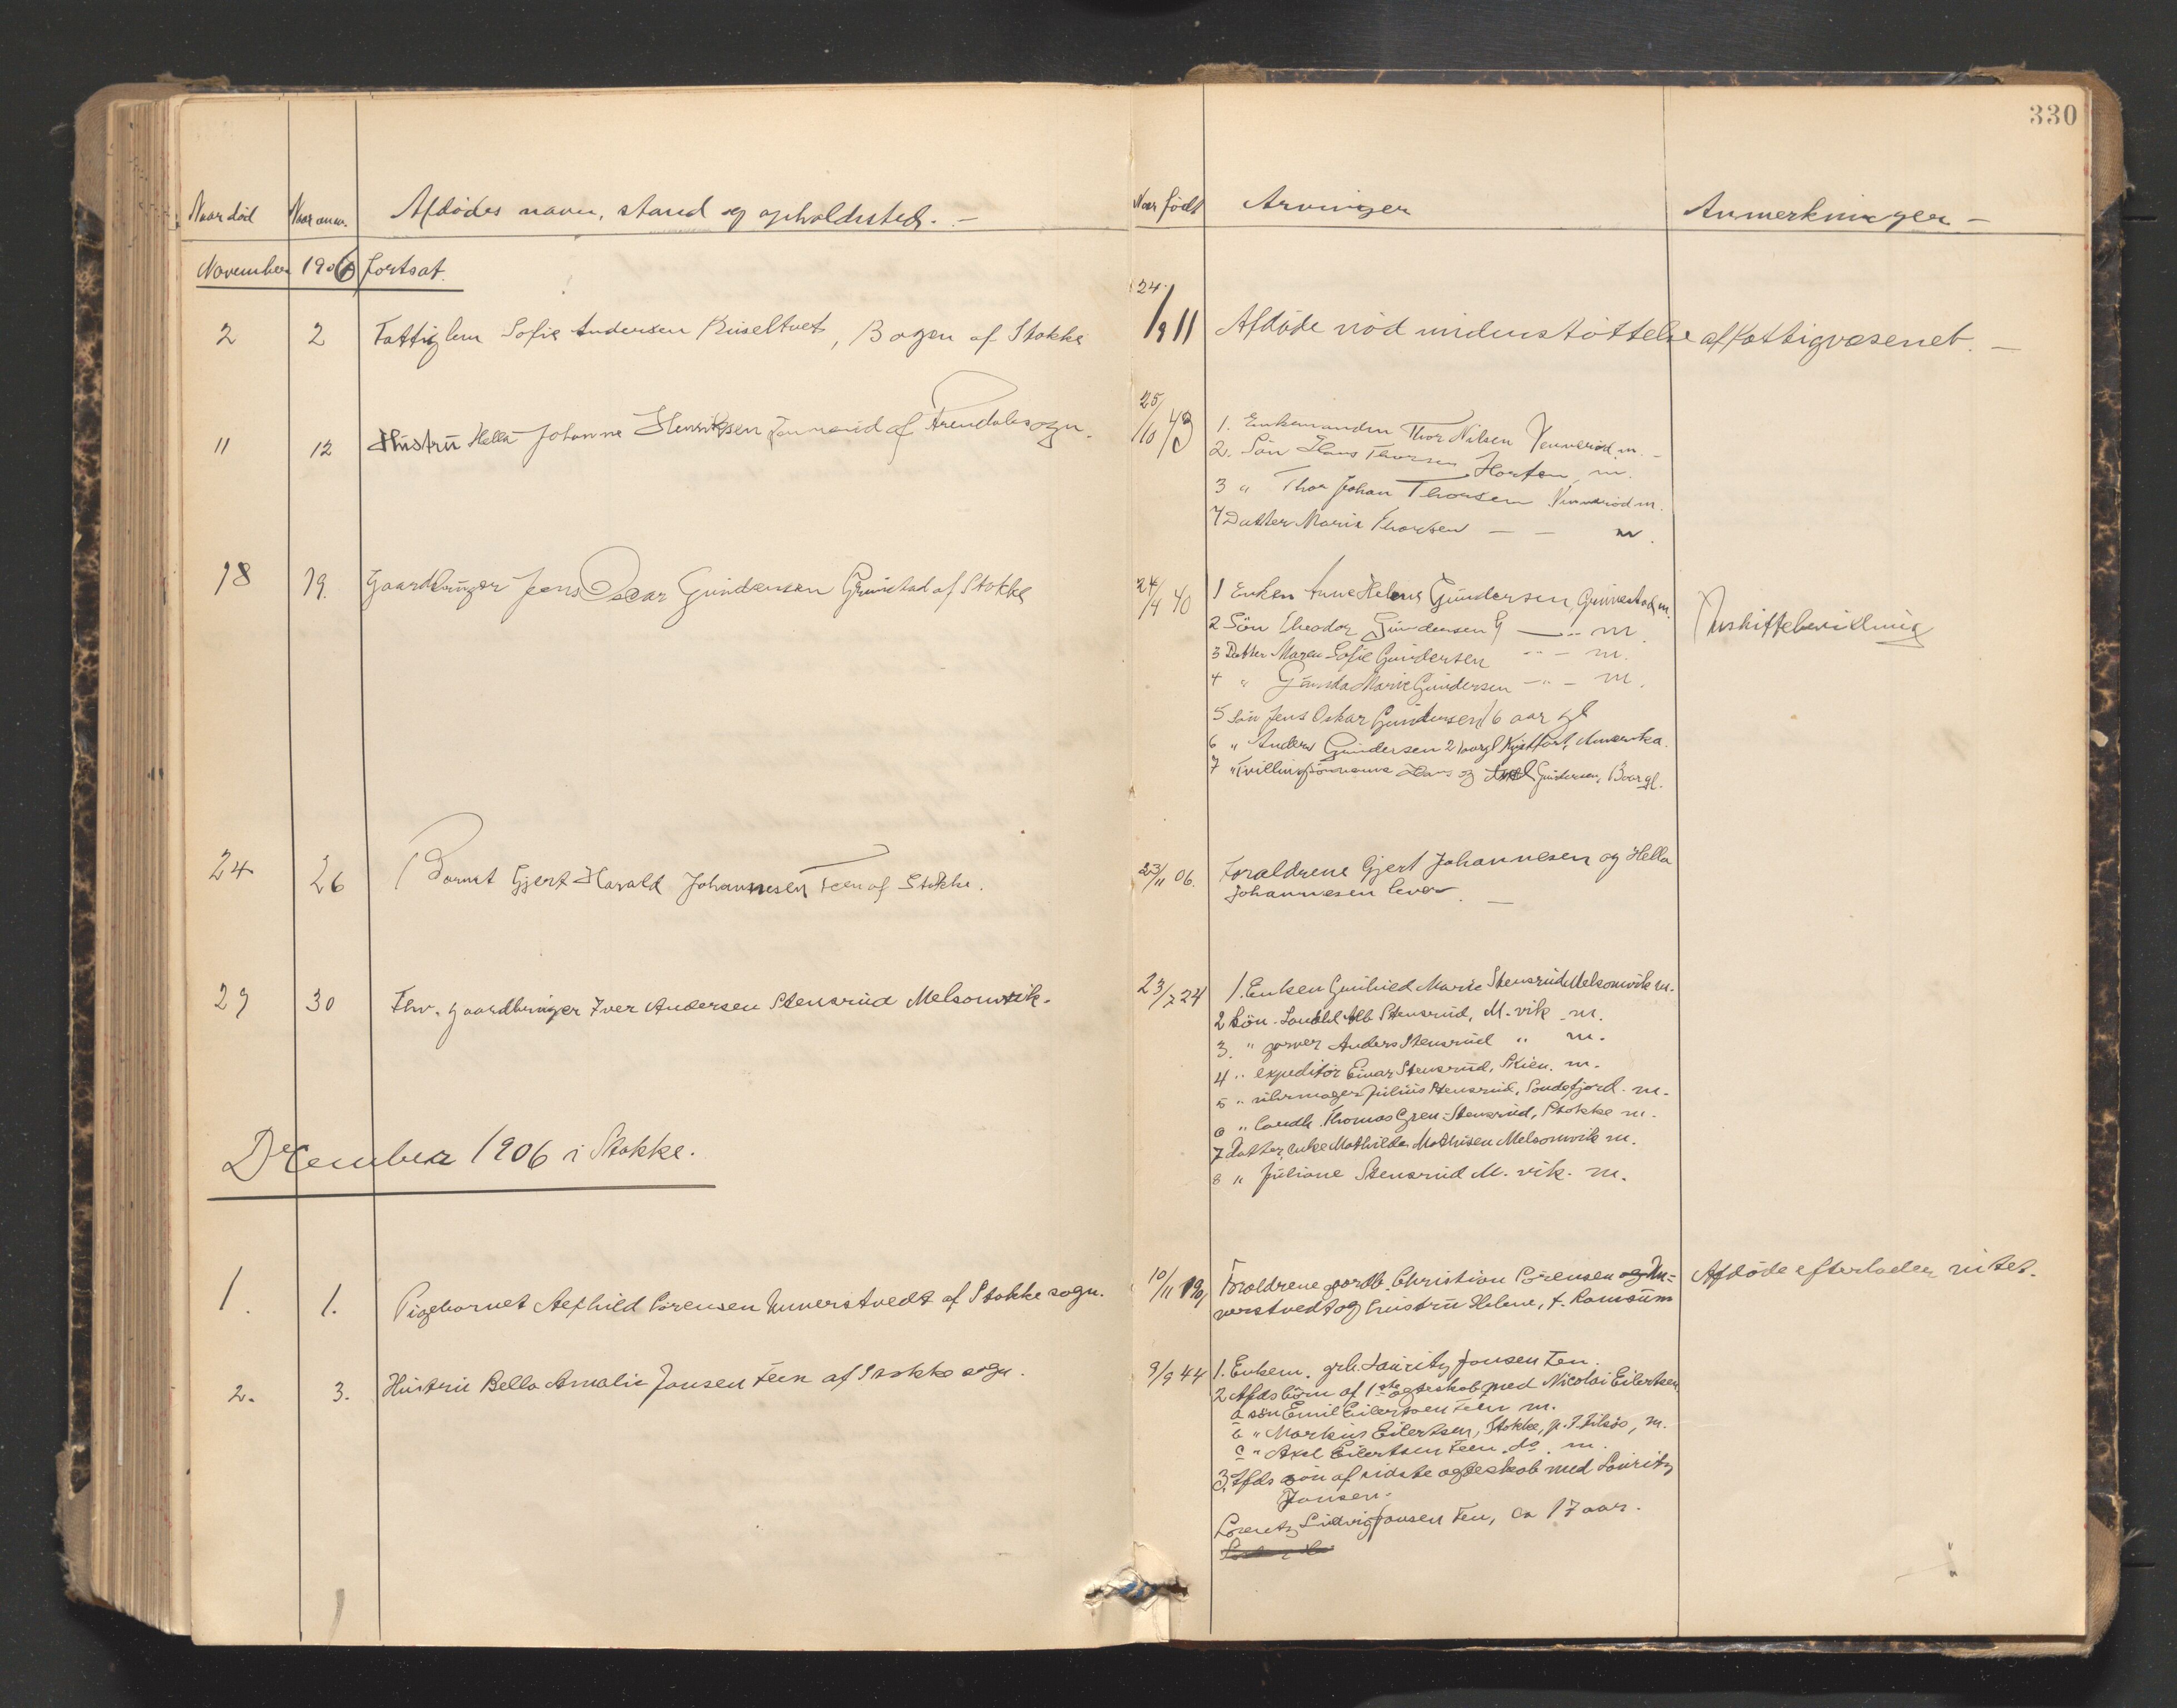 330
Naar død Naar anm. Afdødes navn, stand og opholdssted. - Naar født Arvinger Anmerkninger -
November 1906 fortsat.
2 2 Fattiglem Sofie Andersen, Bogen af Stokke 24/9 11 Afdøde nød understøttelse af Fattigvæsenet. -
11 12 Hustru Hella Johanne Henriksen af Arendals sogn. 25/10 43
1. Enkemanden Thor Nilsen Vennerød m. -
2. Søn Hans Thorsen Horten m.
3 " Thor Johan Thorsen Vennerød m.
4 Datter Marie Thorsen - - m.
18 19. Gaardbruger Jens Oscar Gundersen Grimestad af Stokke 24/4 40
1 Enken Anne Helene Gundersen, Grimestad m.
2 Søn Theodor Gundersen G - " - m.
3 Datter Maren Sofie Gundersen - " - m.
4 " Gunda Marie Gundersen - " - m.
5 Søn Jens Oskar Gundersen 16 aar gl
6 " Anders Gundersen 21 aar gl Amerika.
7 " Tvillingsønnerne Hans og Axel Gundersen, aar gl.
Uskiftebevilling
24 26 Barnet Gjert Harald Johannesen Feen af Stokke. 23/11 06. Forældrene Gjert Johannesen og Hella
Johannesen lever. -
27 30 Fhv. gaardbruger Iver Andersen Stensrud Melsomvik. 23/7 24
1. Enken Gunhild Marie Stensrud Melsomvik m.
2 Søn Alb Stensrud, M. vik m.
3. " garver Anders Stensrud " m.
4 " expeditør Einar Stensrud, Skien. m.
5 " uhrmager Julius Stensrud, Sandefjord. m.
6 " landh. Thomas Gren-Stensrud, Stokke m.
7 Datter, enke Mathilde Mathisen Melsomvik m.
8 " Juliane Stensrud M. vik. m.
December 1906 i Stokke.
1. 1. Pigebarnet Alfhild Sørensen Unnerstvedt af Stokke sogn. 10/11 19 Forældrene gaardb. Christian Sørensen og Un-
nerstvedt og hustru Helene, f. Ramsum
Afdøde efterlader intet.
2. 3. Hustru Bella Amalie Jansen Feen af Stokke sogn. 9/9 44
1. Enkem. grb. Lauritz Jansen Fen.
2 Afds børn af 1ste ægteskab med Nicolai Eilertsen
a søn Emil Eilertsen Feen m.
b " Markus Eilertsen, Stokke, m.
c " Axel Eilertsen Feen do. m.
3. Afds søn af sidste ægteskab med Lauritz
Jansen.
Lorentz Ludvig Jansen Fen, ca 17 aar.